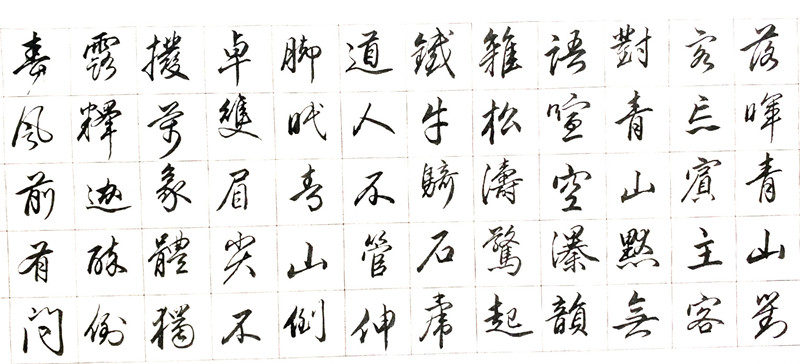 落暉青山對
客忘賓主客
對青山默無
語喧空瀑韻
雜松濤驚起
鐵牛騎石虎
道人不管伸
腳眠青山倒
卓雙眉尖不
撥萬象體獨
露釋迦醉倒
春風前有問